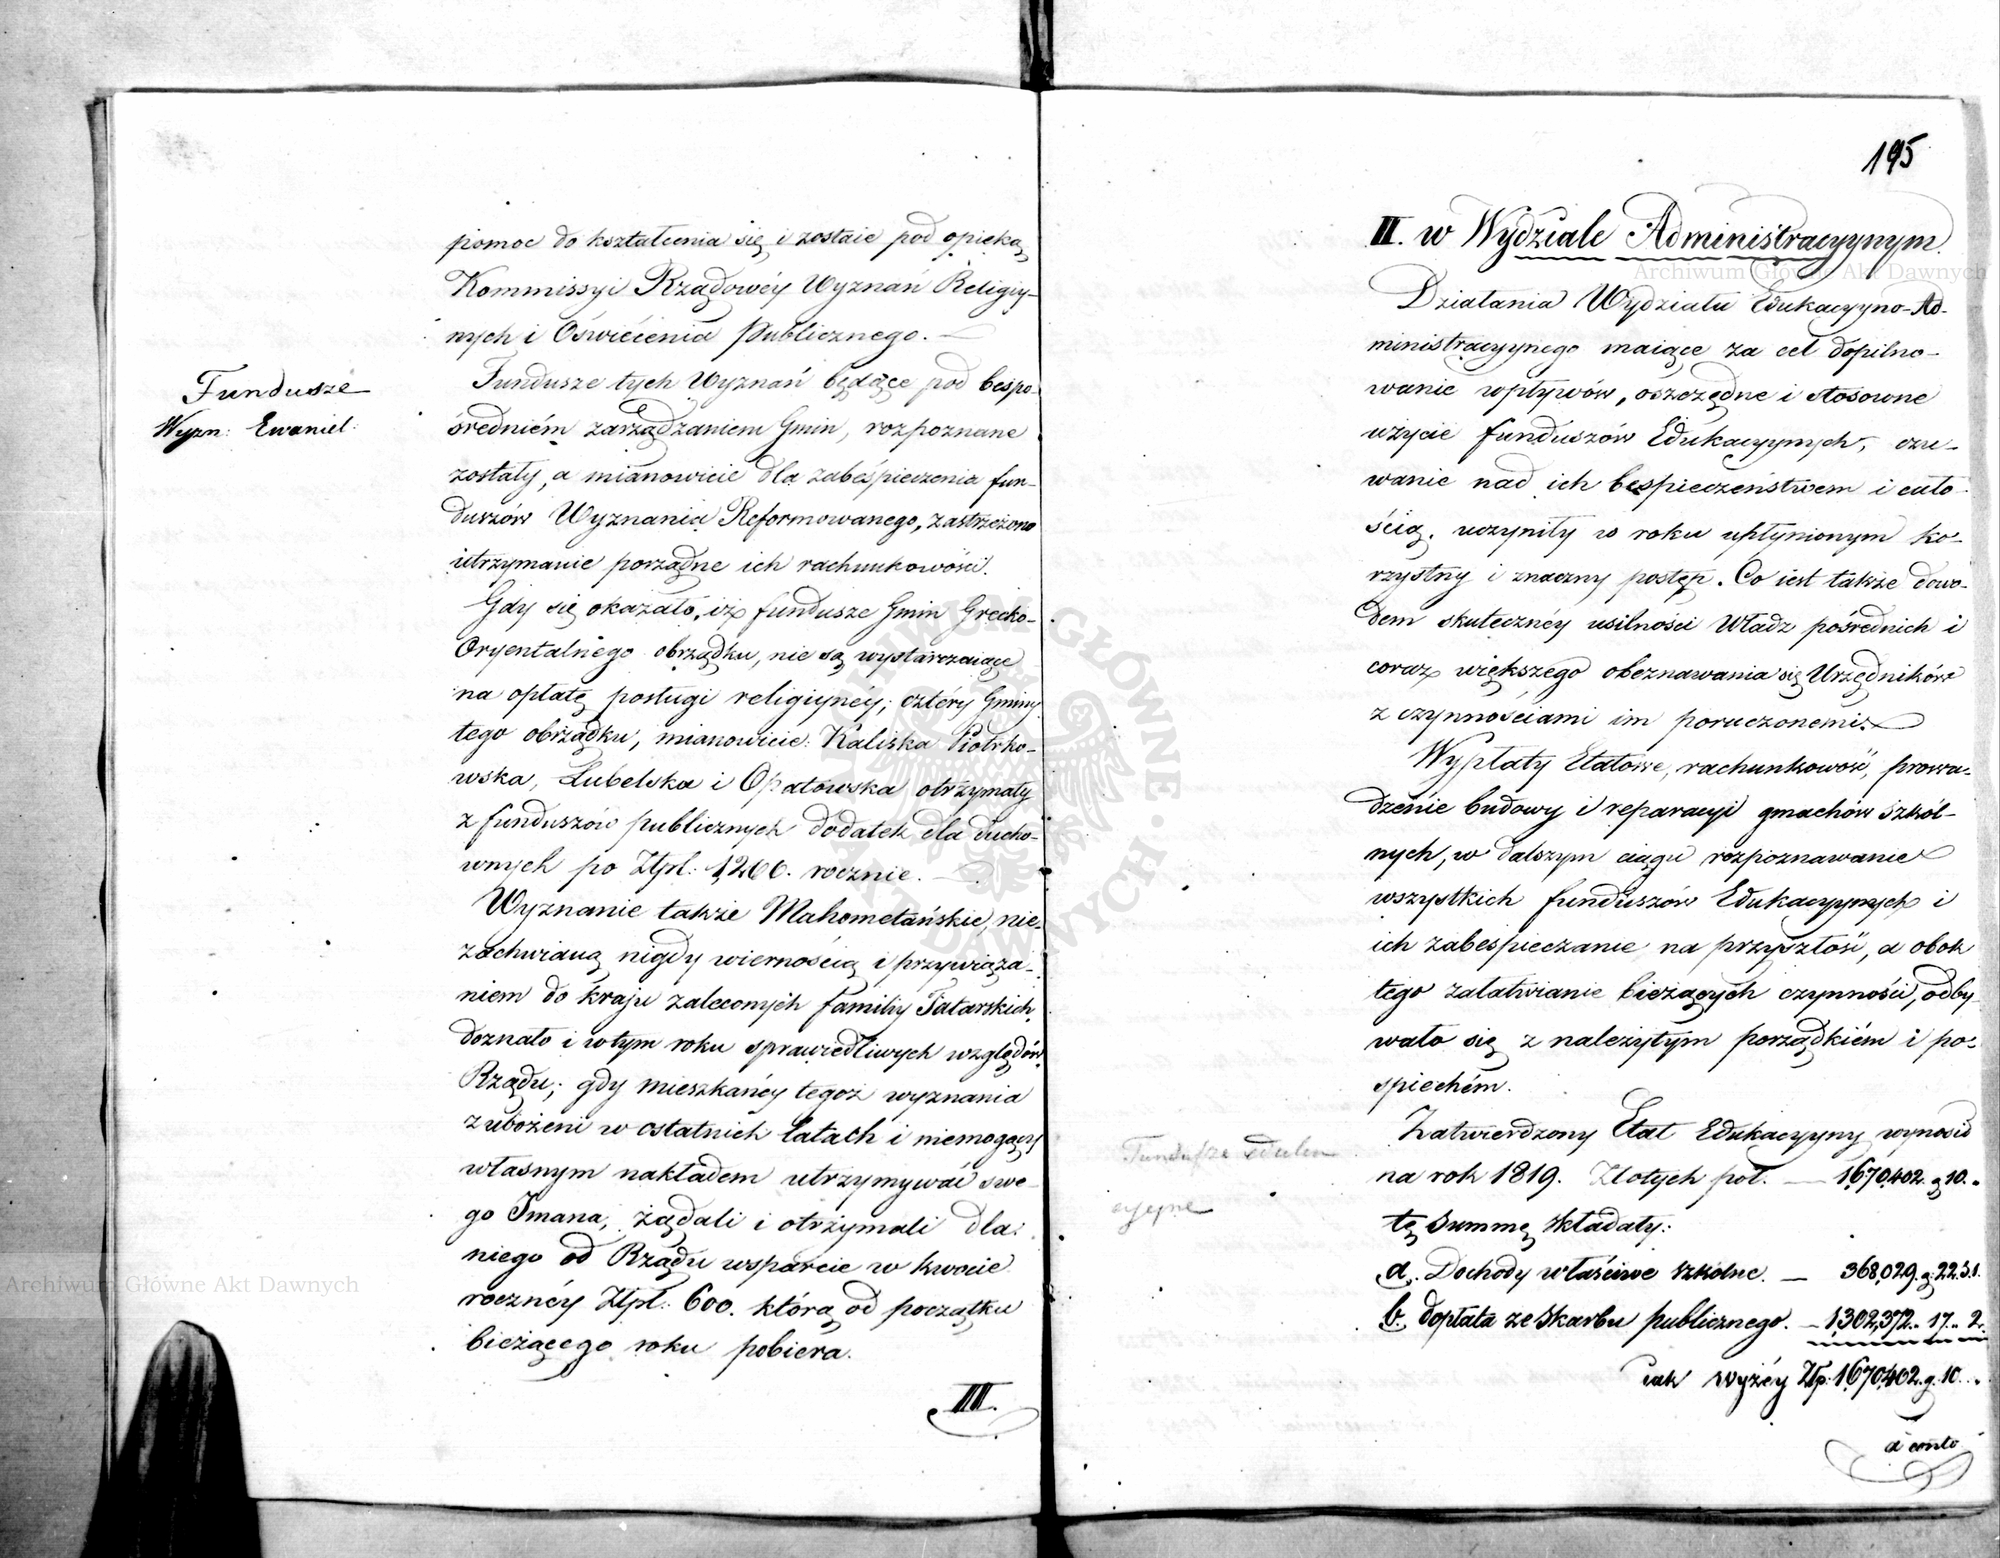 pomoc do kształcenia się i zostaie pod opieką
Kommissyi Rządowéy Wyznań Religiy-
nych i Oświécenia Publicznego. —
Fundusze
Wyzn: Ewaniel:
Fundusze tych Wyznań będące pod bespo-
średniém zarządzaniem Gmin, rozpoznane
zostały, a mianowicie dla zabespieczenia fun-
duszów Wyznania Reformowanego, zastrzeżono
utrzymanie porządne ich rachunkowości.
Gdy się okazało, iż fundusze Gmin Grecko-
Oryentalnego obrządku, nie są wystarczaiące
na opłatę posługi religiynéy; cztéry Gminy
tego obrządku, mianowicie: Kaliska Piotrko-
wska, Lubelska i Opatowska otrzymały
z funduszów publicznych dodatek dla ducho-
wnych po Złpl: 1,200. rocznie. —
Wyznanie także Mahometańskie, nie-
zachwianą nigdy wiernością i przywiąza-
niem do kraju zaleconych familiy Tatarskich,
doznało i w tym roku sprawiedliwych względów
Rządu; gdy mieszkańcy tegoż wyznania
zubożeni w ostatnich latach i niemogący
własnym nakładem utrzymywać swe-
go Imana, żądali i otrzymali dla
niego od Rządu wsparcie w kwocie
rocznéy Złpl: 600. którą od początku
bieżącego roku pobiéra.
III.
195
II. w Wydziale Administracyynym.
Działania Wydziału Edukacyyno-Ad-
ministracyynego maiące za cel dopilno-
wanie wpływów, oszczędne i stosowne
użycie funduszów Edukacyynych, czu-
wanie nad ich bespieczeństwem i cało-
ścią, uczyniły w roku upłynionym ko-
rzystny i znaczny postęp. Co iest także dowo-
dem skutecznéy usilności Władz pośrednich i
coraz większego obeznawania się Urzędników
z czynnościami im poruczonemi.
Wypłaty Etatowe, rachunkowość, prowa-
dzenie budowy i reparacyi gmachów szkól-
nych, w dalszym ciągu rozpoznawanie
wszystkich funduszów Edukacyynych i
ich zabespieczanie na przyszłość, a obok
tego załatwianie bieżących czynności, odby-
wało się z należytym porządkiém i po-
spiechém.
Fundusze eduka
cyyne
Zatwierdzony Etat Edukacyyny wynosił
na rok 1819. Złotych pol. — 1,670,402. g 10. "
tę summę składały:
a. Dochody właściwe szkolne. — 368,029. g: 22. 3.
b. dopłata ze skarbu publicznego. — 1,302,372. " 17. " 2.
iak wyżéy Złp: 1,670,402. g: 10. "
a conto
Archiwum Główne Akt Dawnych
Archiwum Główne Akt Dawnych
ARCHIWUM GŁÓWNE AKT DAWNYCH